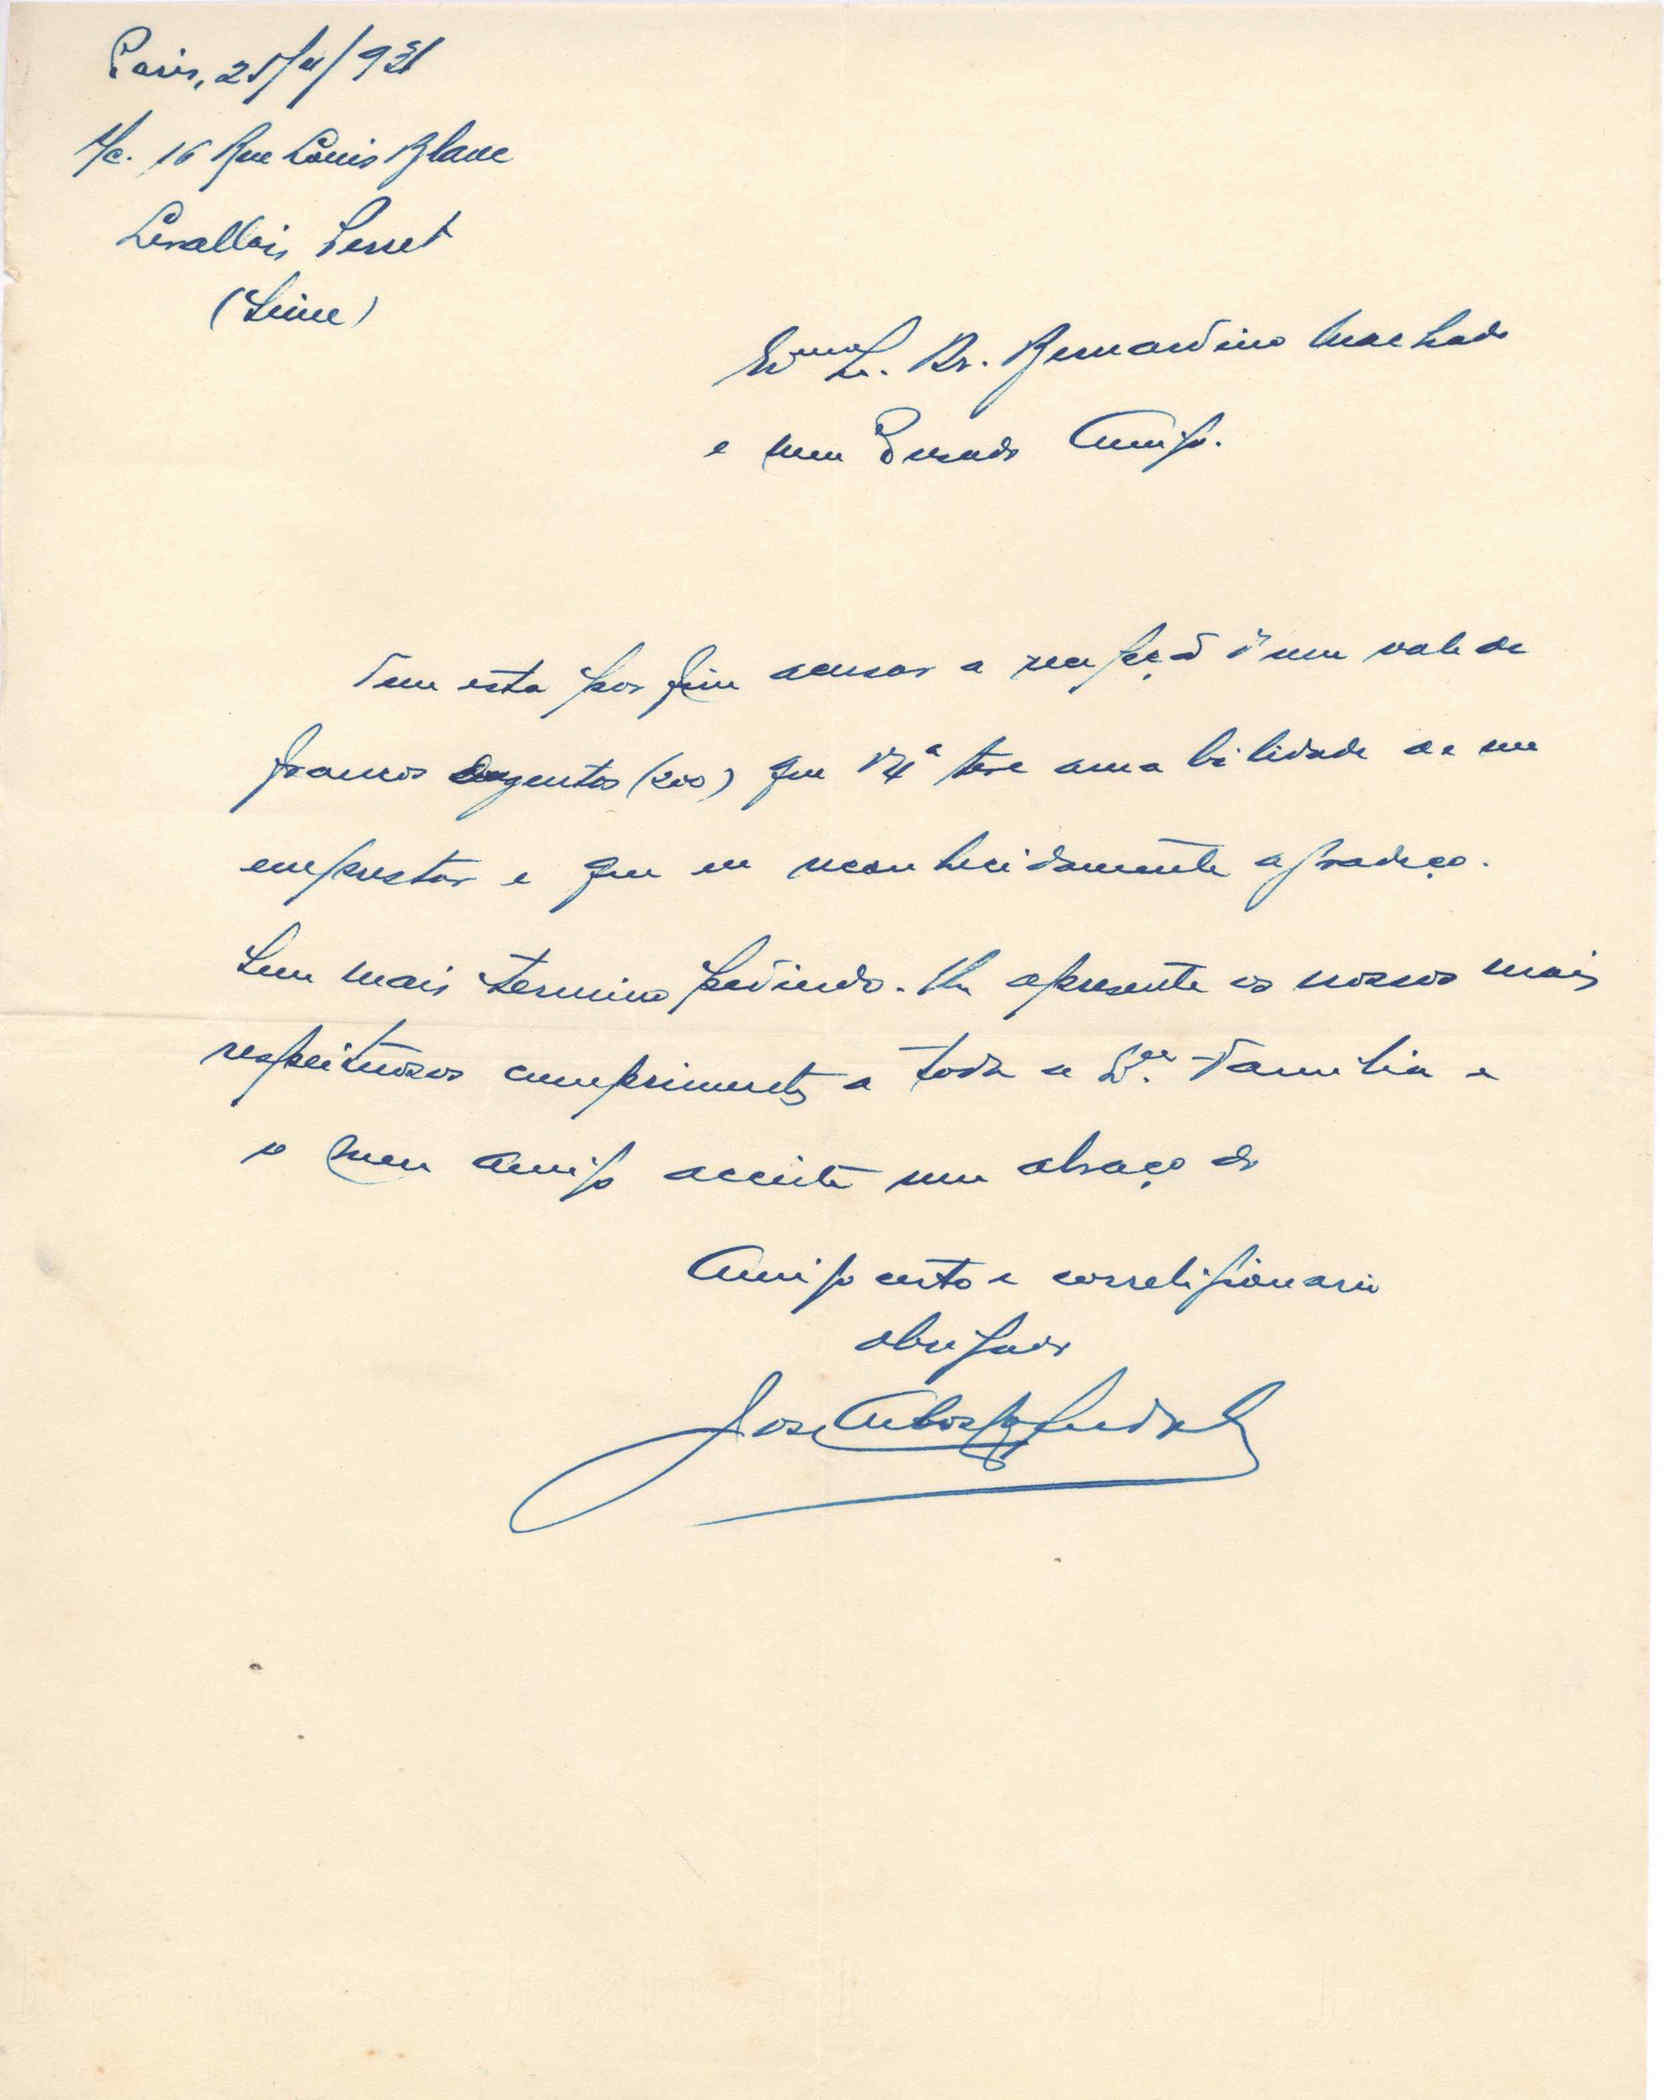 Paris, 25/11/931
M/c. 16 Rue Louis Blanc
Levallois Perret
(Seine)
Exmo Sr. Dr. Bernardino Machado
e meu Presado Amigo.
Vem esta por fim acusar a recepção d'um vale de
francos duzentos (200) que V. Ex.ª teve amabilidade de me
emprestar e que eu reconhecidamente agradeço.
Sem mais termino pedindo-lhe apresente os nossos mais
respeitosos cumprimentos a toda a Família e
o meu amigo acceite um abraço do
Amigo certo e correligionario
obrigado
José